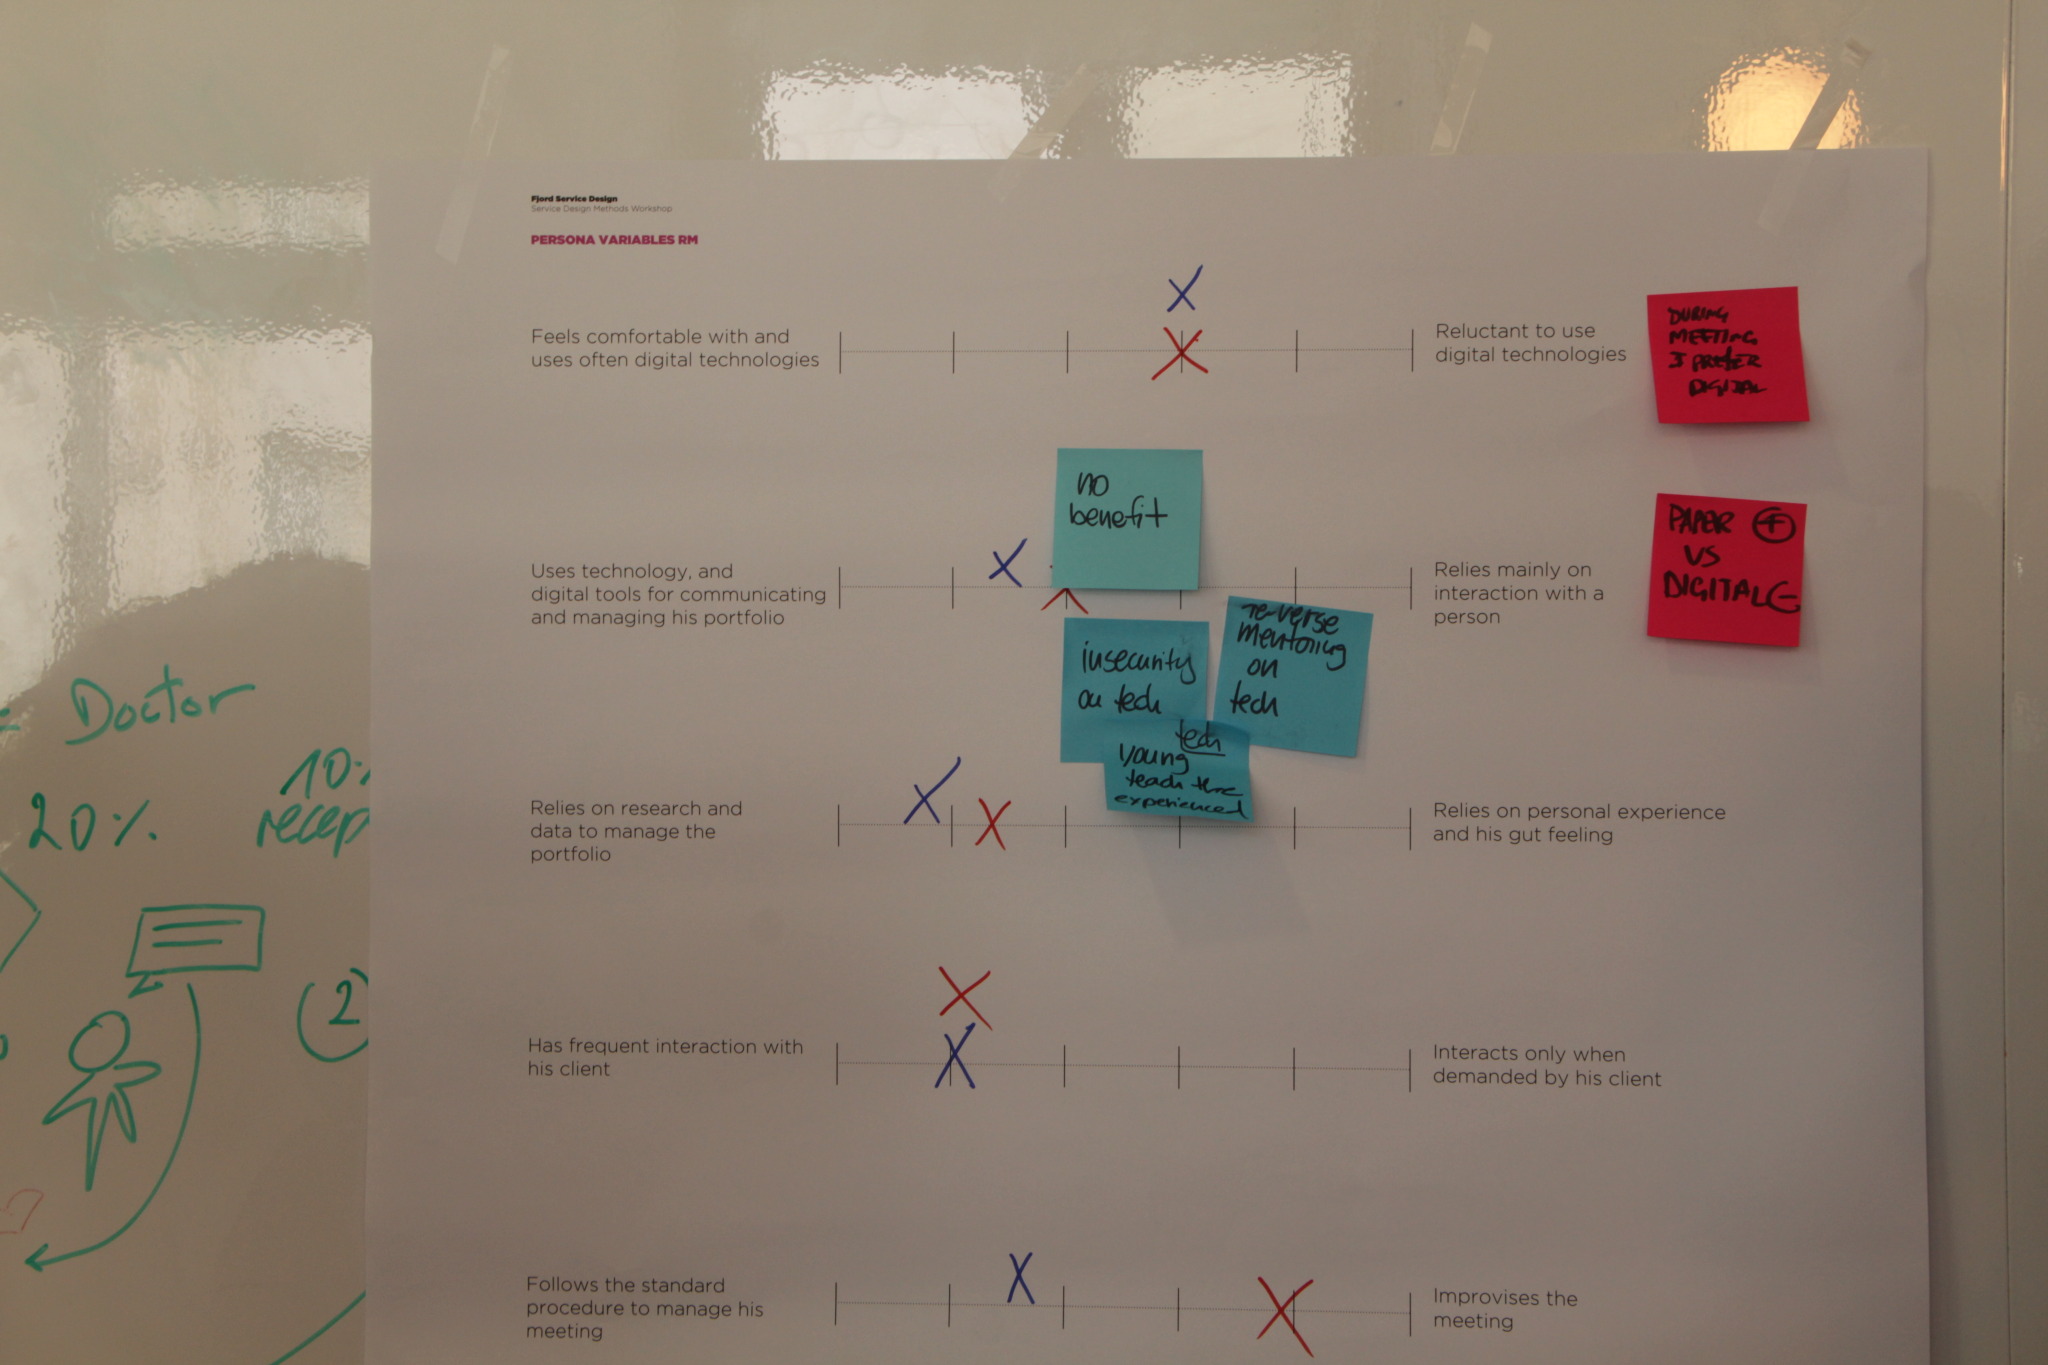 Fjord Service Design
Service Design Methods Workshop
PERSONA VARIABLES RM
Feels comfortable with and
uses often digital technologies
Reluctant to use
digital technologies
DURING
MEETING
I PREFER
DIGITAL
no
benefit
Uses technology, and
digital tools for communicating
and managing his portfolio
Relies mainly on
interaction with a
person
PAPER +
VS
DIGITAL -
insecurity
on tech
re-verse
mentoring
on
tech
tech
young
teach the
experienced
Relies on research and
data to manage the
portfolio
Relies on personal experience
and his gut feeling
Has frequent interaction with
his client
Interacts only when
demanded by his client
Follows the standard
procedure to manage his
meeting
Improvises the
meeting
= Doctor
20%
10%
recep
(2)